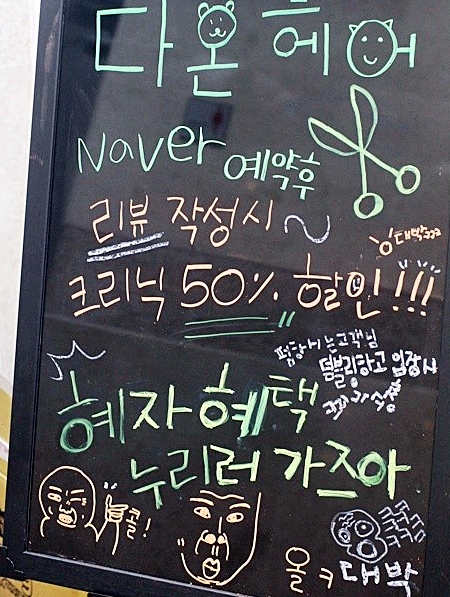 다온헤어
Naver 예약후
리뷰 작성시 ~
대박ㅋㅋㅋ
크리닉 50% 할인!!!
펌하시는고객님
텀블링하고 입장시
혜자혜택
누리러 가즈아
콜!
올ㅋ 대박